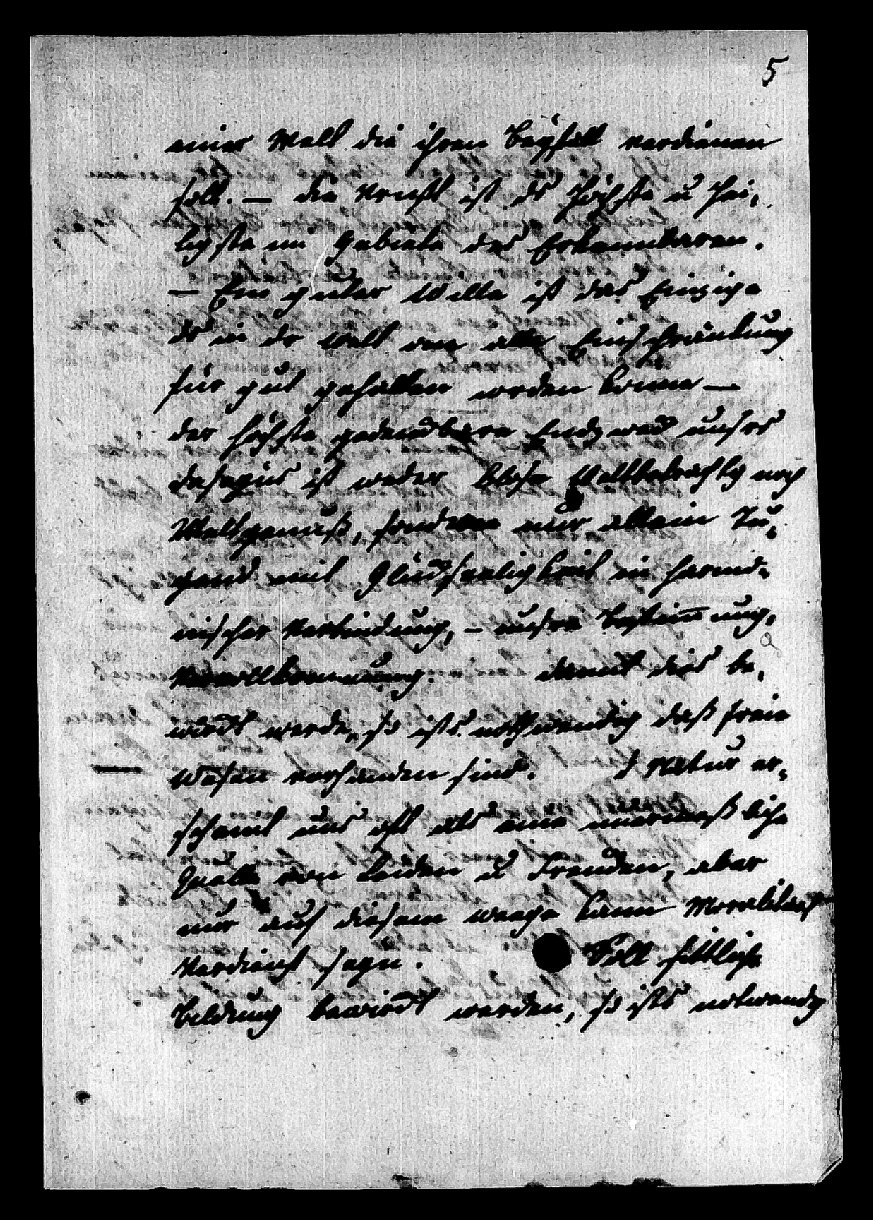 5
einer Welt die ihren Beyfall verdienen
soll. — die Vrnft ist ds höchste u hei,
ligste im Gebiete des Erkennbaren.
— Ein guter Wille ist das Einzige
ds in dr Welt one alle Einschränkung
für gut gehalten werden könne —
der höchste gedenckbare Endzweck unsrs
daseyns ist weder blose Weltbetrachtg noch
Weltgenuß, sondern nur allein Tu,
gend mit Glückseeligkeit in harmo,
nischer Verbindung, – unsre Bestimmung,
Vervollkommnung. damit dies be,
wirckt werde, so ists nothwendig daß freie
Wesen vorhanden sind. d Natur er,
scheint uns oft als eine unermeßliche
Quelle von Leiden u Freuden, aber
nur auf diesem weege kann Moralität
Verdienst seyn. Soll sittliche
bildung bewirckt werden, so ists notwendig